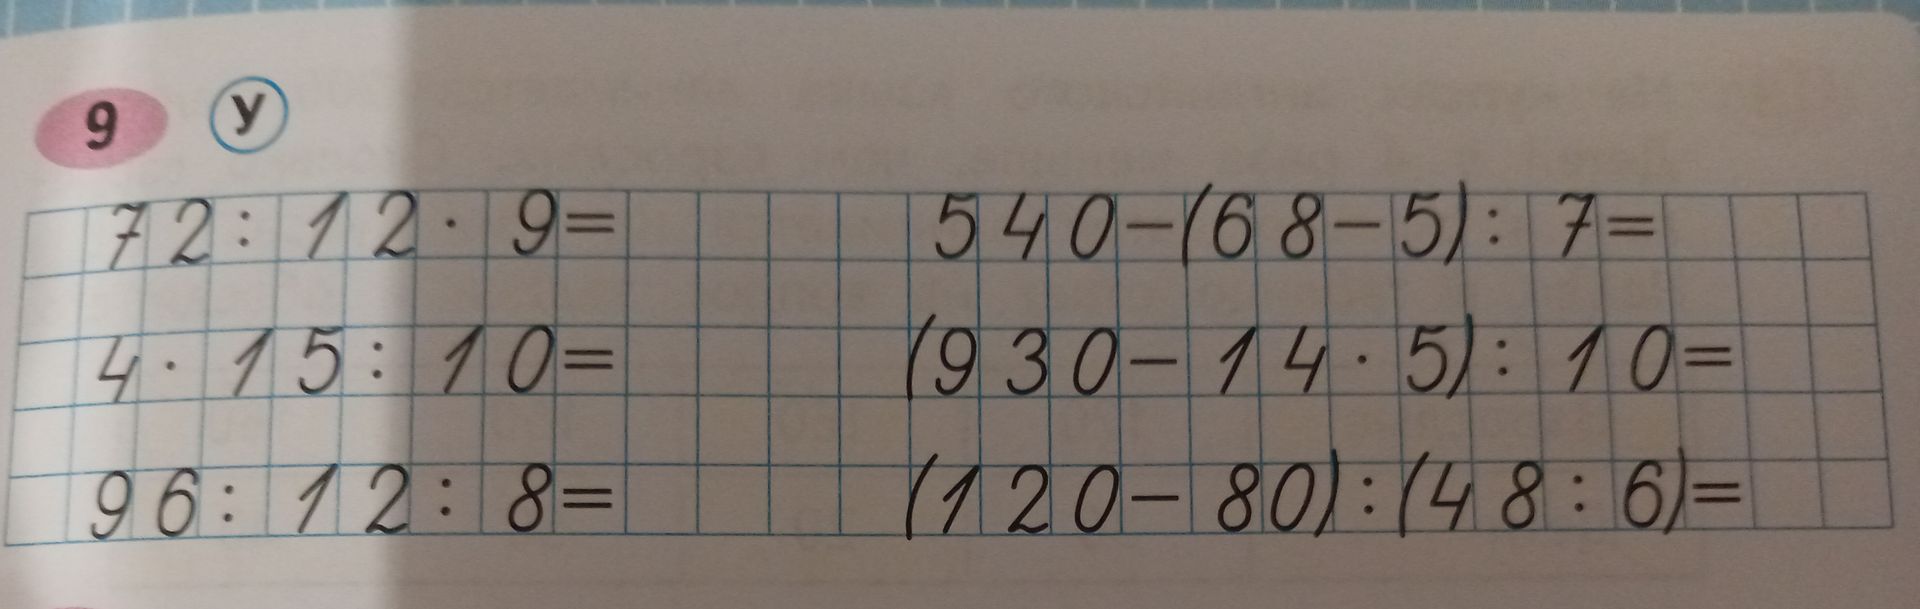 9 У
72 : 12 · 9 =
540 - (68 - 5) : 7 =
4 · 15 : 10 =
(930 - 14 · 5) : 10 =
96 : 12 : 8 =
(120 - 80) : (48 : 6) =